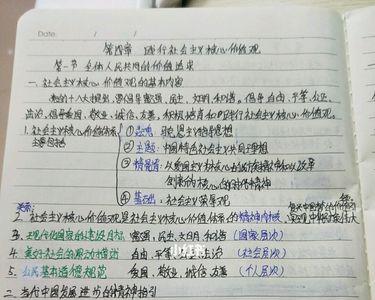 Date. / /
第四章 践行社会主义核心价值观
第一节 全体人民共同的价值追求
一、社会主义核心价值观的基本内容
党的十八大提出,要倡导富强、民主、文明、和谐。倡导自由、平等、公正、
法治,倡导爱国、敬业、诚信、友善,积极培育和践行社会主义核心价值观。
1. 社会主义核心价值体系
主要包括
①灵魂:马克思主义指导思想
②主题:中国特色社会主义共同理想
③精髓:以爱国主义为核心的民族精神和以改革
创新为核心的时代精神
④基础:社会主义荣辱观
2. 社会主义核心价值观是社会主义核心价值体系的精神内核
3. 现代化国家的建设目标 富强、民主、文明、和谐(国家层次)
4. 美好社会的 自由、平等、公正、法治(社会层次)
5. 公民基本道德规范 爱国、敬业、诚信、友善(个人层次)
二、当代中国发展进步的精神指引
小红书